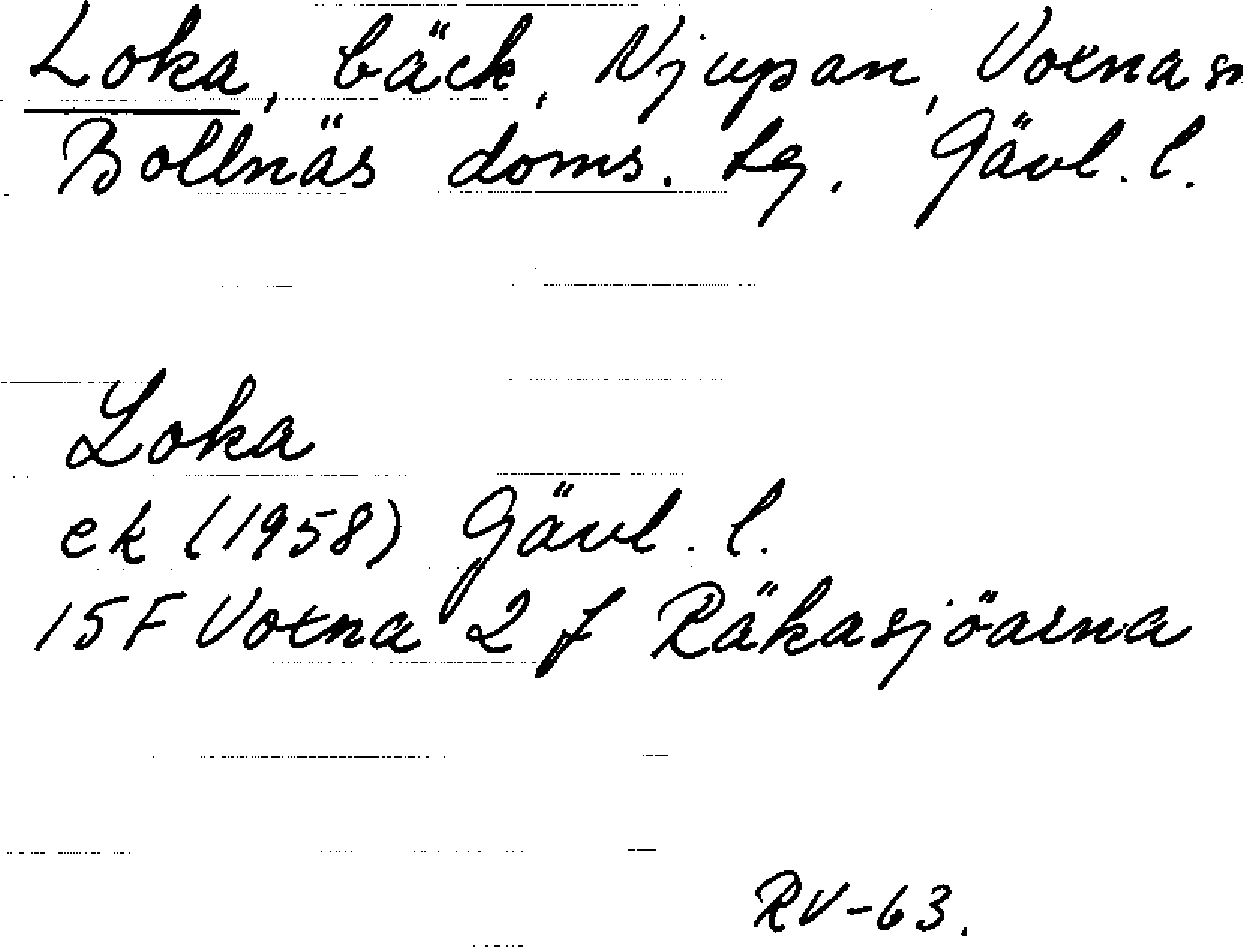 Loka, bäck, Njupan, Voxna sn
Bollnäs doms. tg. Gävl. l.
Loka
ek (1958) Gävl. l.
15F Voxna 2 f Räkasjöarna
RV-63.